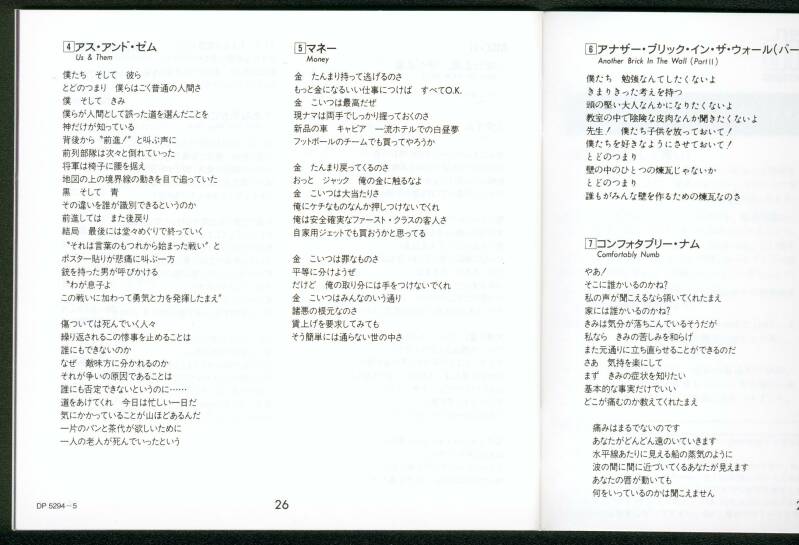 4 アス・アンド・ゼム
Us & Them
僕たち そして 彼ら
とどのつまり 僕らはごく普通の人間さ
僕 そして きみ
僕らが人間として誤った道を選んだことを
神だけが知っている
背後から〝前進!〟と叫ぶ声に
前列部隊は次々と倒れていった
将軍は椅子に腰を据え
地図の上の境界線の動きを目で追っていた
黒 そして 青
その違いを誰が識別できるというのか
前進しては また後戻り
結局 最後には堂々めぐりで終っていく
〝それは言葉のもつれから始まった戦い〟と
ポスター貼りが悲痛に叫ぶ一方
銃を持った男が呼びかける
〝わが息子よ
この戦いに加わって勇気と力を発揮したまえ〟
傷ついては死んでいく人々
繰り返されるこの惨事を止めることは
誰にもできないのか
なぜ 敵味方に分かれるのか
それが争いの原因であることは
誰にも否定できないというのに……
道をあけてくれ 今日は忙しい一日だ
気にかかっていることが山ほどあるんだ
一片のパンと茶代が欲しいために
一人の老人が死んでいったという
5 マネー
Money
金 たんまり持って逃げるのさ
もっと金になるいい仕事につけば すべてO.K.
金 こいつは最高だぜ
現ナマは両手でしっかり握っておくのさ
新品の車 キャビア 一流ホテルでの白昼夢
フットボールのチームでも買ってやろうか
金 たんまり戻ってくるのさ
おっと ジャック 俺の金に触るなよ
金 こいつは大当たりさ
俺にケチなものなんか押しつけないでくれ
俺は安全確実なファースト・クラスの客人さ
自家用ジェットでも買おうかと思ってる
金 こいつは罪なものさ
平等に分けようぜ
だけど 俺の取り分には手をつけないでくれ
金 こいつはみんなのいう通り
諸悪の根元なのさ
賃上げを要求してみても
そう簡単には通らない世の中さ
DP 5294-5
26
6 アナザー・ブリック・イン・ザ・ウォール(パー
Another Brick In The Wall (Part II)
僕たち 勉強なんてしたくないよ
きまりきった考えを持つ
頭の堅い大人なんかになりたくないよ
教室の中で陰険な皮肉なんか聞きたくないよ
先生! 僕たち子供を放っておいて!
僕たちを好きなようにさせておいて!
とどのつまり
壁の中のひとつの煉瓦じゃないか
とどのつまり
誰もがみんな壁を作るための煉瓦なのさ
7 コンフォタブリー・ナム
Comfortably Numb
やあ!
そこに誰かいるのかね?
私の声が聞こえるなら頷いてくれたまえ
家には誰かいるのかね?
きみは気分が落ちこんでいるそうだが
私なら きみの苦しみを和らげ
また元通りに立ち直らせることができるのだ
さあ 気持を楽にして
まず きみの症状を知りたい
基本的な事実だけでいい
どこが痛むのか教えてくれたまえ
痛みはまるでないのです
あなたがどんどん遠のいていきます
水平線あたりに見える船の蒸気のように
波の間に間に近づいてくるあなたが見えます
あなたの唇が動いても
何をいっているのかは聞こえません